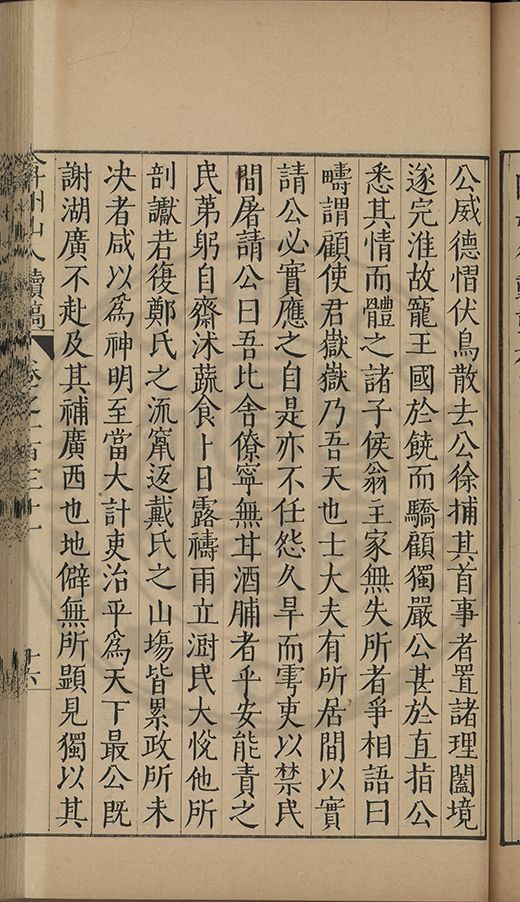 公威德慴伏鳥散去公徐捕其首事者置諸理闔境
遂完淮故寵王國於饒而驕顧獨嚴公甚於直指公
悉其情而體之諸子侯翁主家無失所者爭相語曰
疇謂顧使君嶽嶽乃吾天也士大夫有所居間以實
請公必實應之自是亦不任怨久旱而雩吏以禁民
間屠請公曰吾比舍僚寧無甘酒脯者乎安能責之
民第躬自齋沐蔬食卜日露禱雨立澍民大悅他所
剖讞若復鄭氏之流竄返戴氏之山塲皆累政所未
决者咸以爲神明至當大計吏治平爲天下最公旣
謝湖廣不赴及其補廣西也地僻無所顕見獨以其
弇州山人續稿 卷之一百三十一 十六